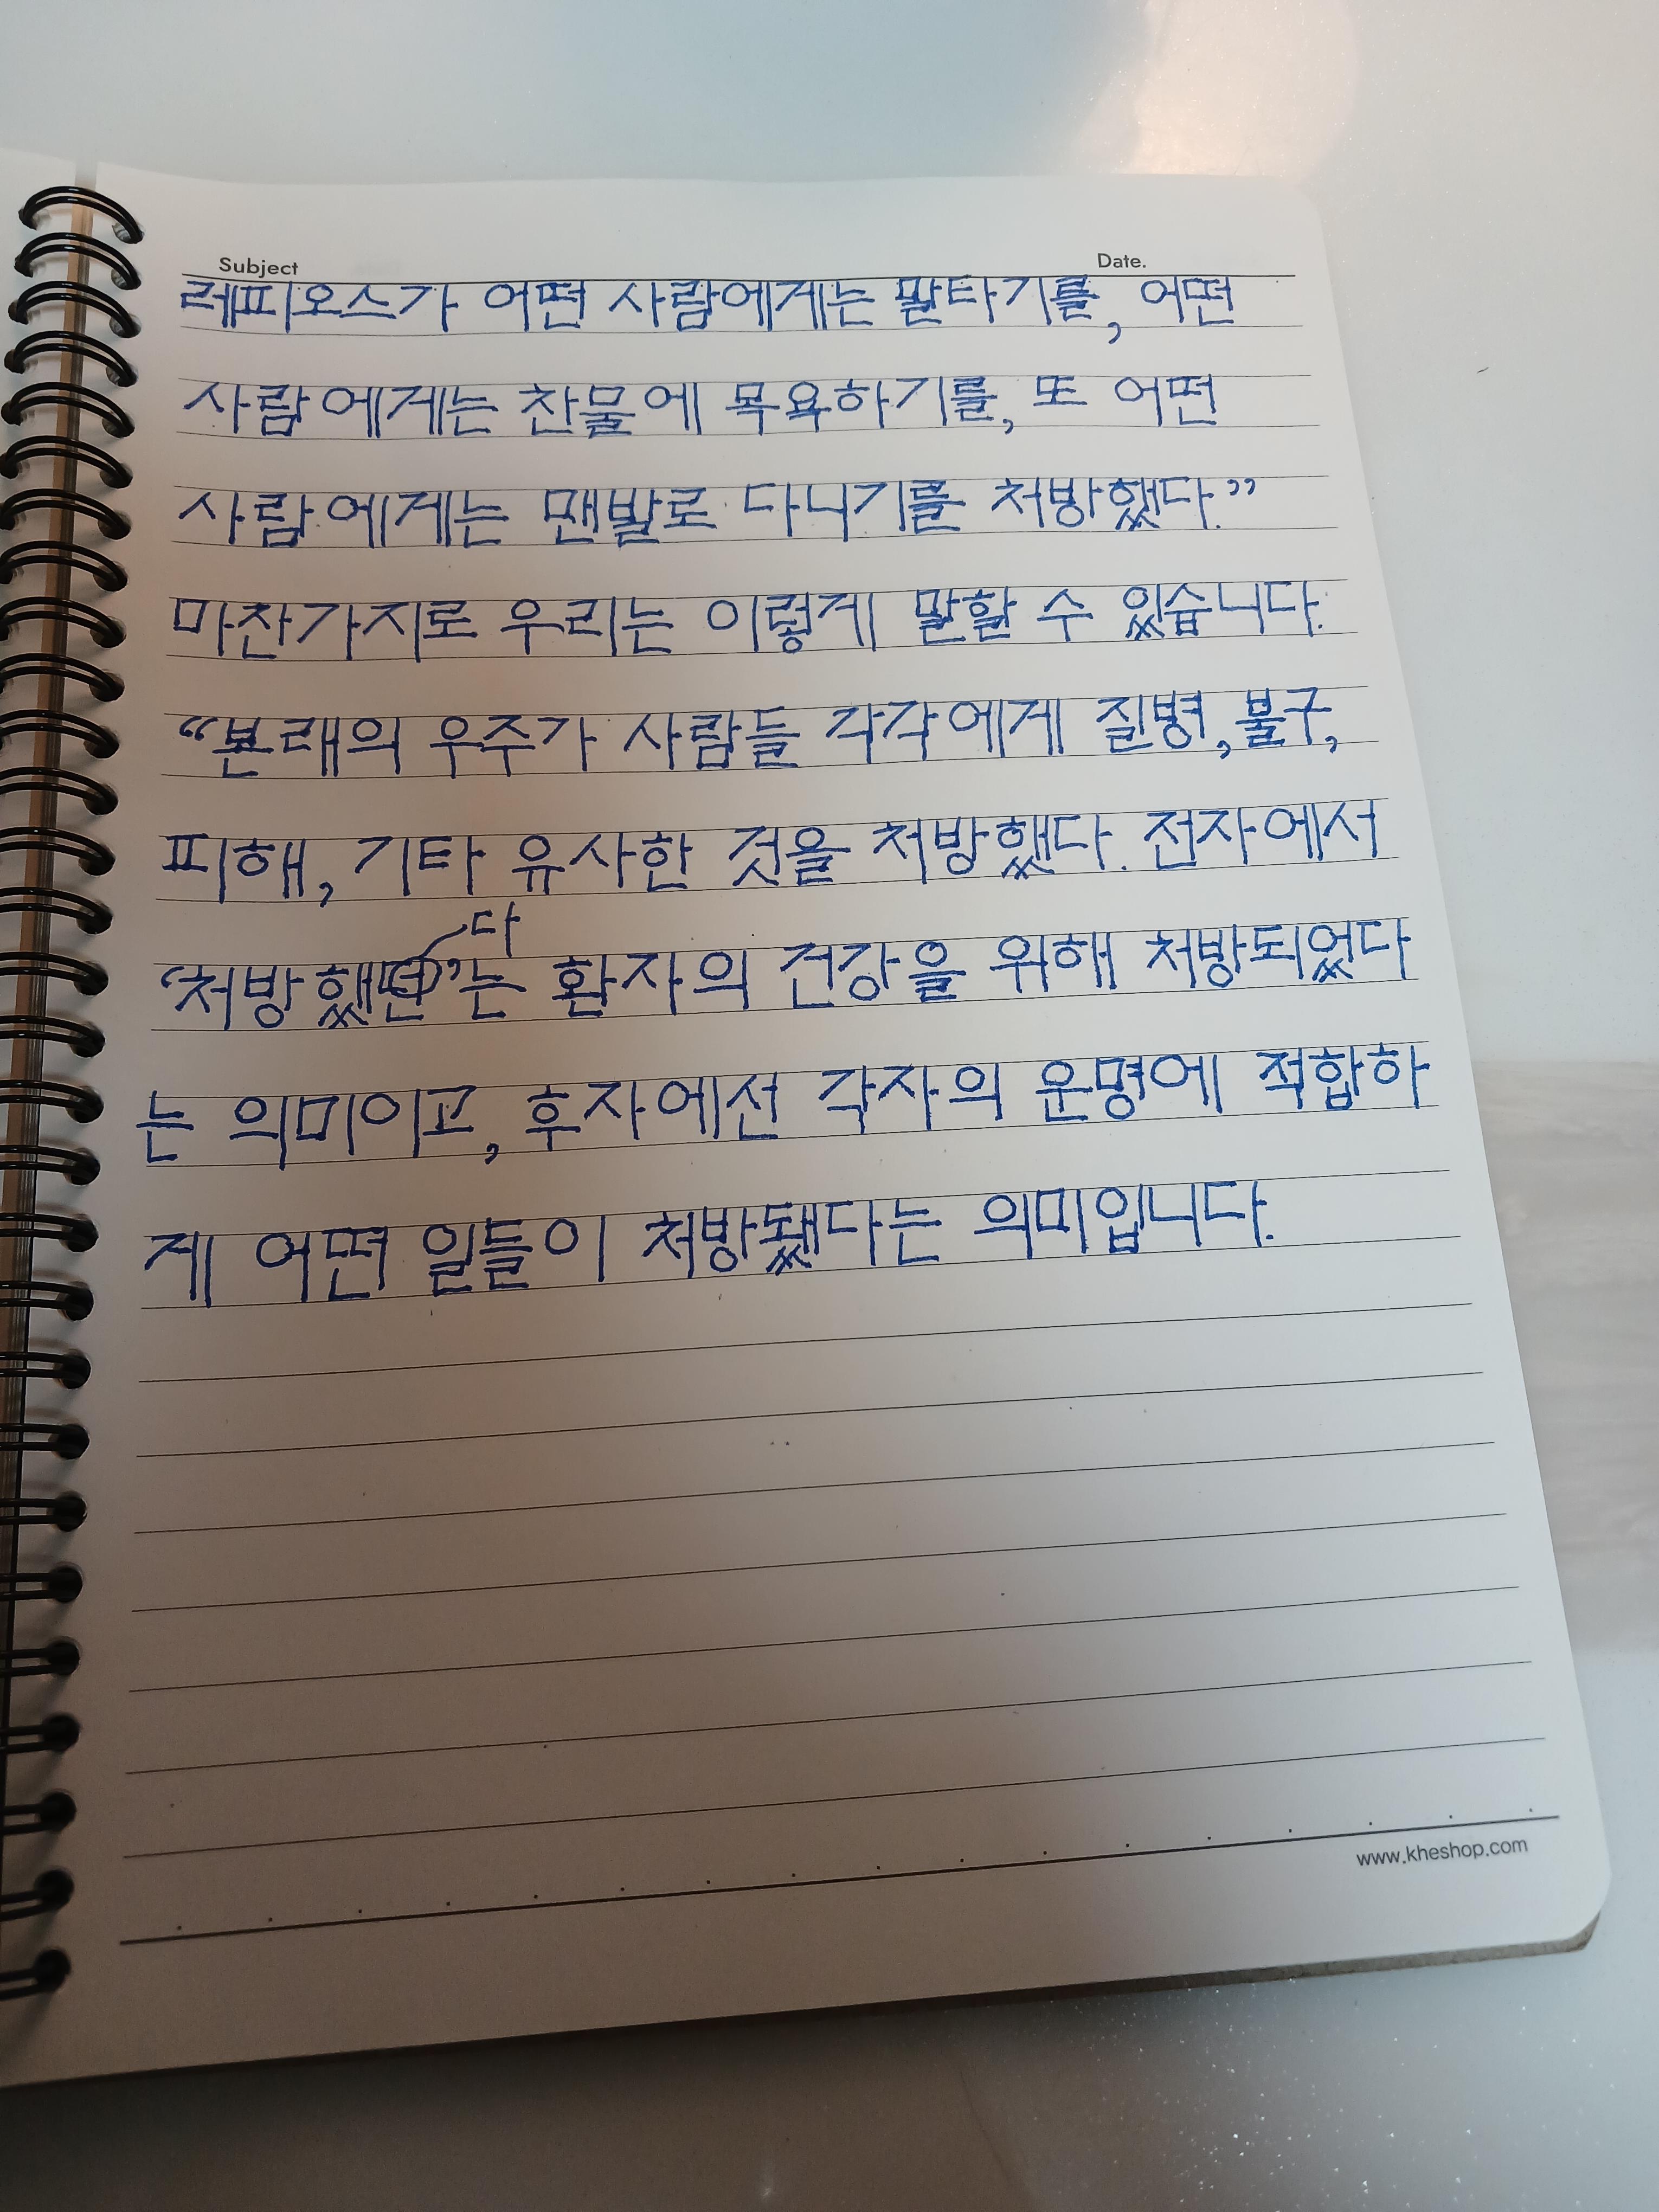 Subject Date.
레피오스가 어떤 사람에게는 말타기를, 어떤
사람에게는 찬물에 목욕하기를, 또 어떤
사람에게는 맨발로 다니기를 처방했다.”
마찬가지로 우리는 이렇게 말할 수 있습니다.
“본래의 우주가 사람들 각각에게 질병, 불구,
피해, 기타 유사한 것을 처방했다. 전자에서
‘처방했다’는 환자의 건강을 위해 처방되었다
는 의미이고, 후자에선 각자의 운명에 적합하
게 어떤 일들이 처방됐다는 의미입니다.
www.kheshop.com